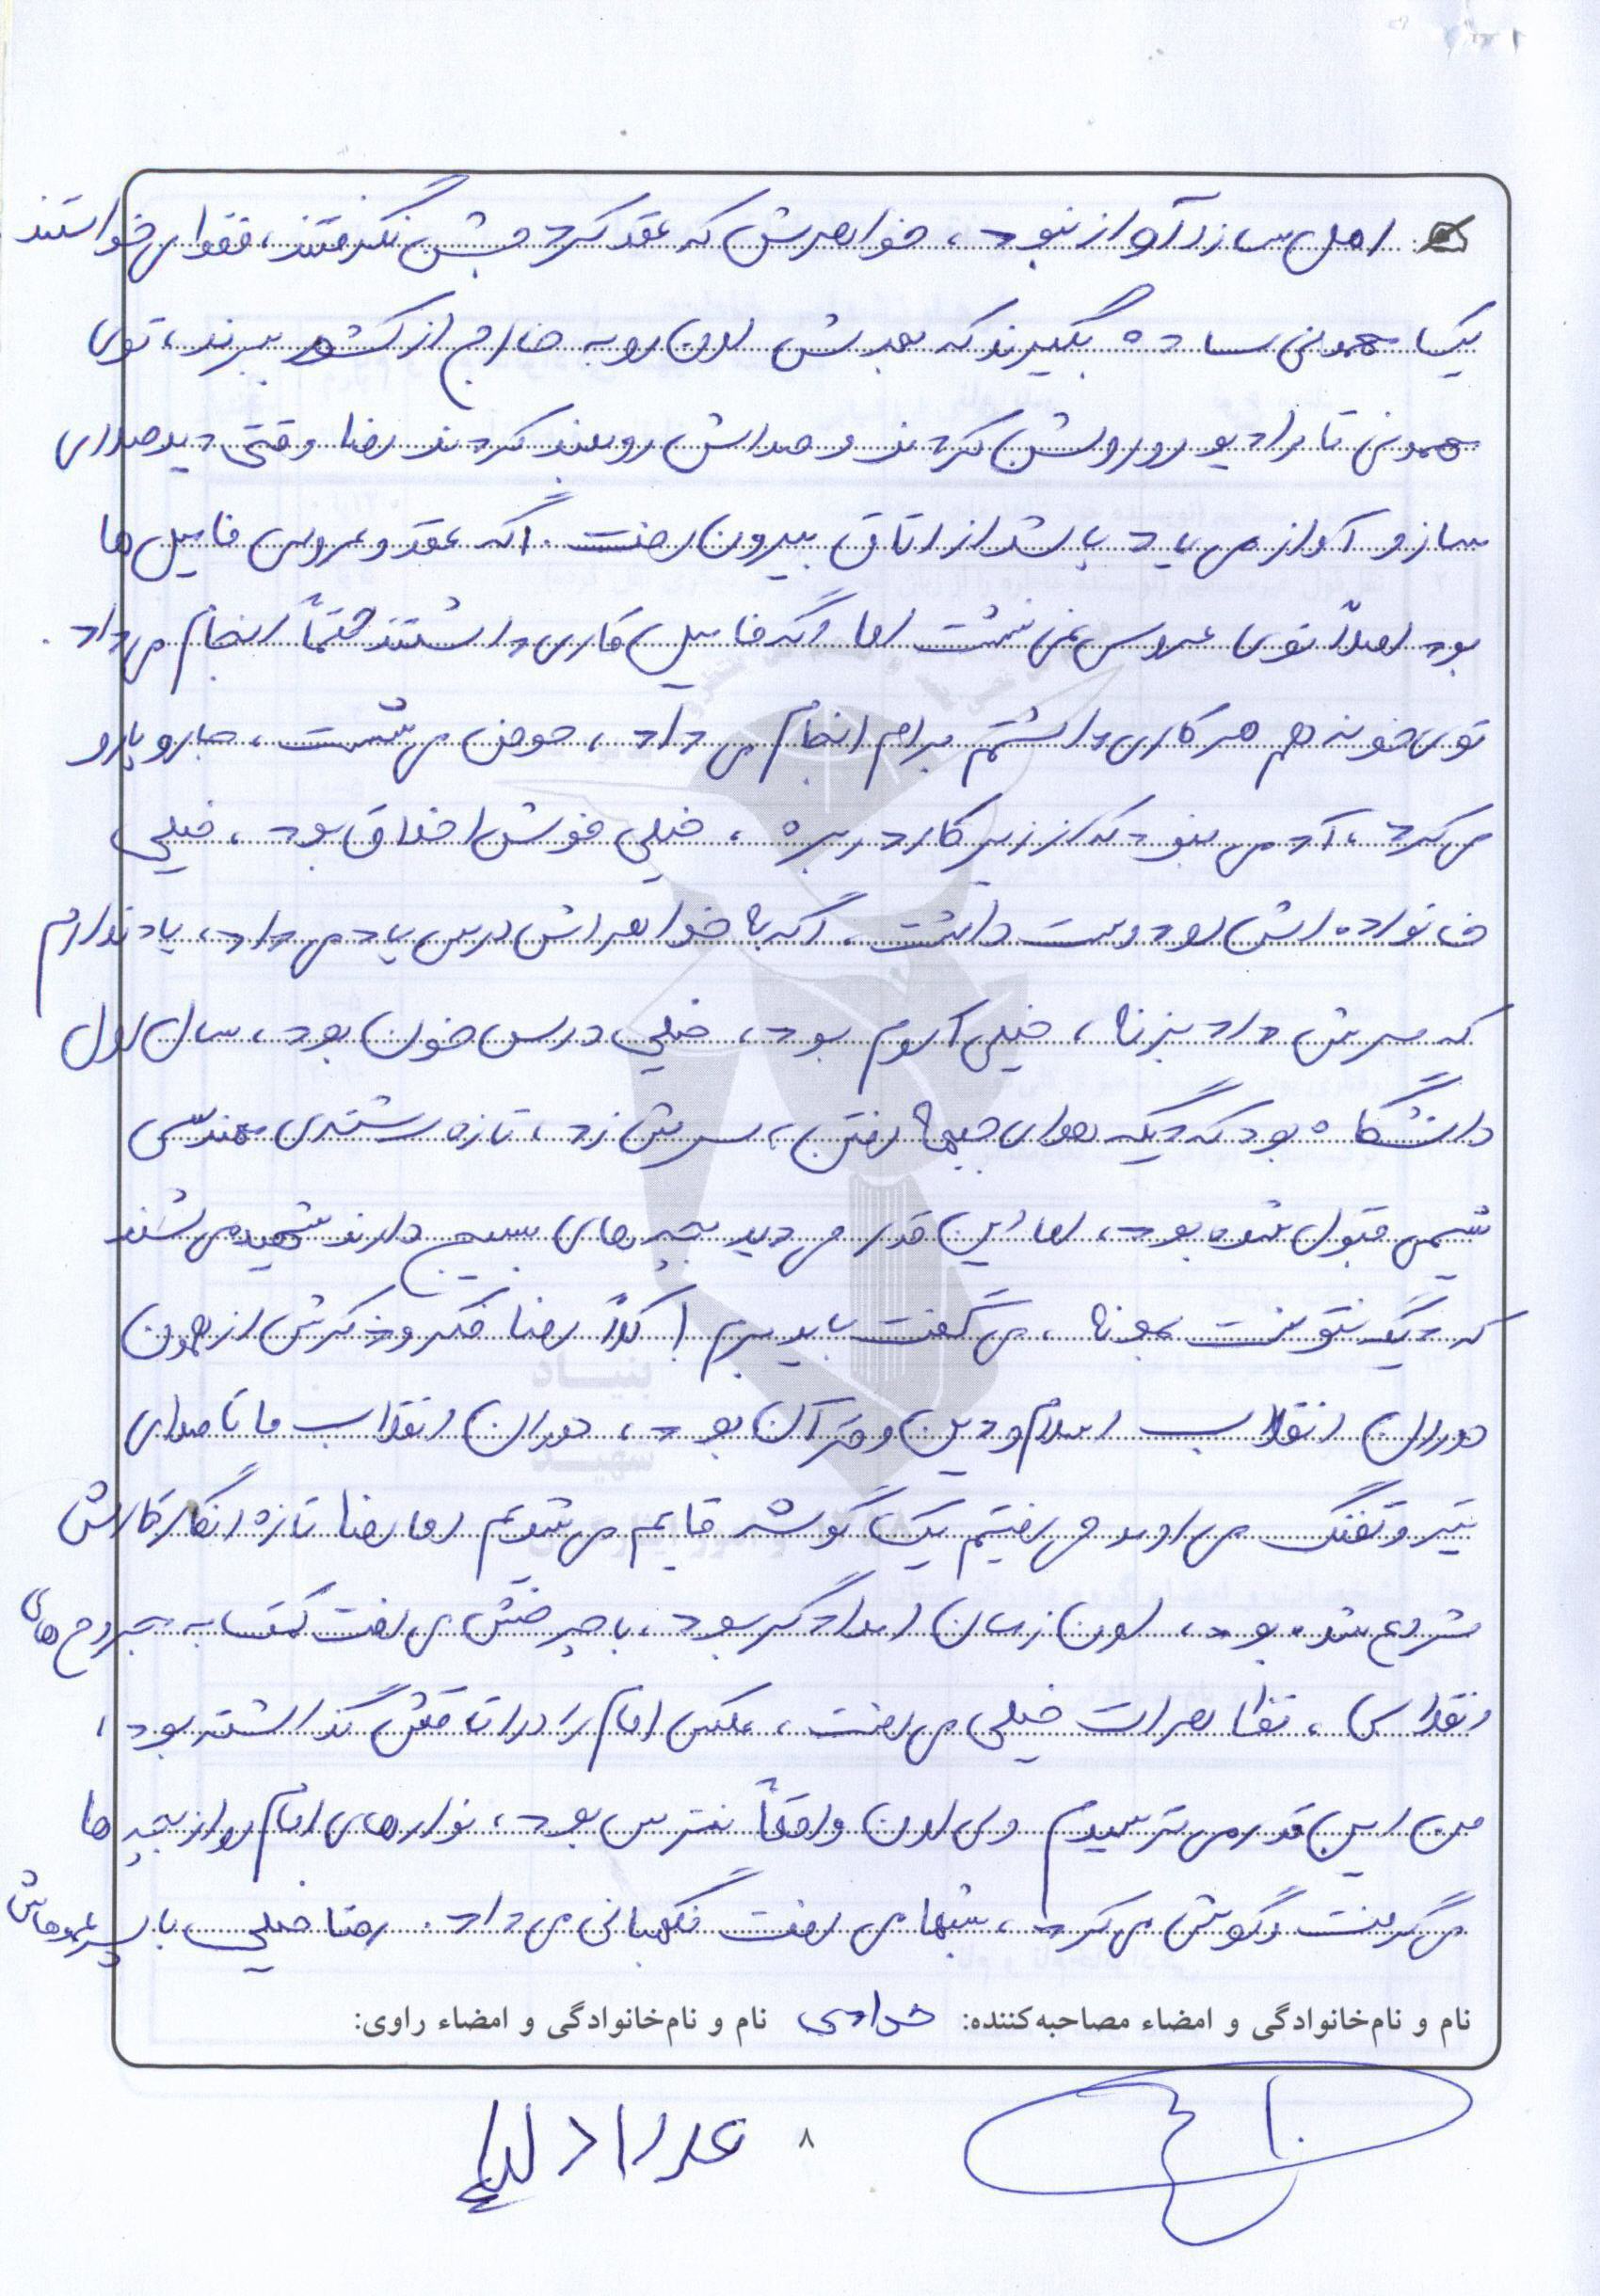 اهل ساز و آواز نبود، خواهرش که عقد کرد جشن نگرفتند، فقط می خواستند
یک مهمونی ساده بگیرند که بعدش اون رو به خارج از کشور ببرند، توی
مهمونی تا رادیو رو روشن کردند و صداش رو بلند کردند رضا وقتی دید صدای
ساز و آواز می یاد پا شد از اتاق بیرون رفت. اگه عقد و عروسی فامیل ها
بود اصلاً توی عروسی نمی نشست اما اگه فامیل کاری داشتند حتماً انجام می داد.
توی خونه هم هر کاری داشتم برام انجام می داد، حوض می شست، جارو پارو
می کرد، آدمی نبود که از زیر کار در بره، خیلی خوش اخلاق بود، خیلی
خانواده اش رو دوست داشت، اگه با خواهراش درس یاد می داد، یاد ندارم
که سرش داد بزنه، خیلی آروم بود، خیلی درس خون بود، سال اول
دانشگاه بود که دیگه هوای جبهه رفتن، سرش زد، تازه رشته ی مهندسی
شیمی قبول شده بود، اما این قدر می دید بچه های بسیج دارند شهید می شند
که دیگه نتونست بمونه، می گفت باید برم! کلاً رضا فکر و ذکرش از همون
دوران انقلاب اسلام و دین و قرآن بود، دوران انقلاب ما تا صدای
تیر و تفنگ می اومد می رفتیم یک گوشه قایم می شدیم اما رضا تازه انگار کارش
شروع شده بود، اون زمان امدادگر بود، با چرخش می رفت کمک به مجروح های
انقلابی، تظاهرات خیلی می رفت، عکس امام را در اتاقش گذاشته بود،
من این قدر می ترسیدم ولی اون واقعاً نترس بود، نوارهای امام رو از بچه ها
می گرفت و گوش می کرد، شبها می رفت نگهبانی می داد. رضا خیلی با پسر عموهاش
نام و نام‌خانوادگی و امضاء مصاحبه‌کننده: نام و نام‌خانوادگی و امضاء راوی:
۸